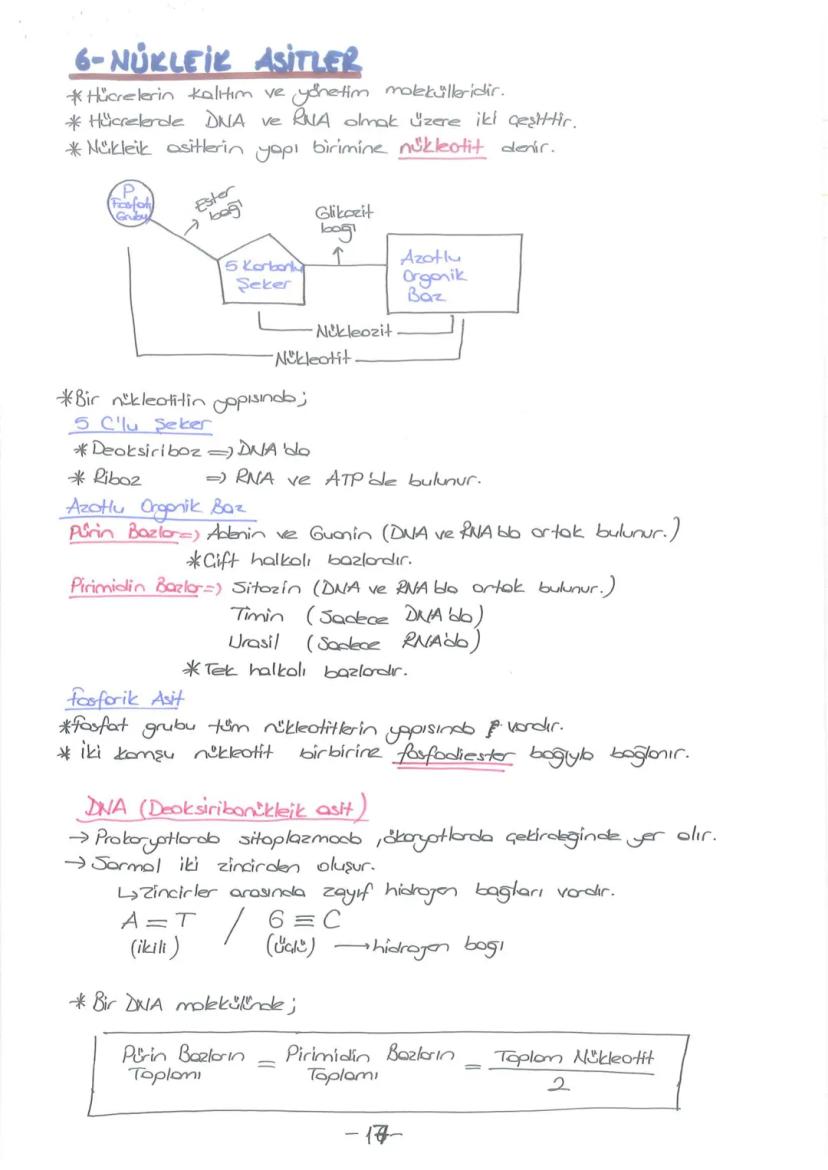 6-NÜKLEİK ASİTLER
* Hücrelerin kalıtım ve yönetim molekülleridir.
* Hücrelerde DNA ve RNA olmak üzere iki çeşittir.
* Nükleik asitlerin yapı birimine nükleotit denir.
P
Fosfat
Grubu
Ester
bağı
Glikozit
bağı
5 Karbonlu
Şeker
Azotlu
Organik
Baz
Nükleozit
Nükleotit
* Bir nükleotitin yapısında;
5 C'lu Şeker
* Deoksiriboz => DNA'da
* Riboz => RNA ve ATP'de bulunur.
Azotlu Organik Baz
Pürin Bazlar=) Adenin ve Guanin (DNA ve RNA'da ortak bulunur.)
* Çift halkalı bazlardır.
Pirimidin Bazlar=) Sitozin (DNA ve RNA'da ortak bulunur.)
Timin (Sadece DNA'da)
Urasil (Sadece RNA'da)
* Tek halkalı bazlardır.
Fosforik Asit
* Fosfat grubu tüm nükleotitlerin yapısında vardır.
* İki komşu nükleotit birbirine fosfodiester bağıyla bağlanır.
DNA (Deoksiribonükleik asit)
→ Prokaryotlarda sitoplazmada, ökaryotlarda çekirdeğinde yer alır.
→ Sarmal iki zincirden oluşur.
↳ Zincirler arasında zayıf hidrojen bağları vardır.
A = T / G ≡ C
(ikili) (üçlü) → hidrojen bağı
* Bir DNA molekülünde;
Pürin Bazların Toplamı = Pirimidin Bazların Toplamı = Toplam Nükleotit / 2